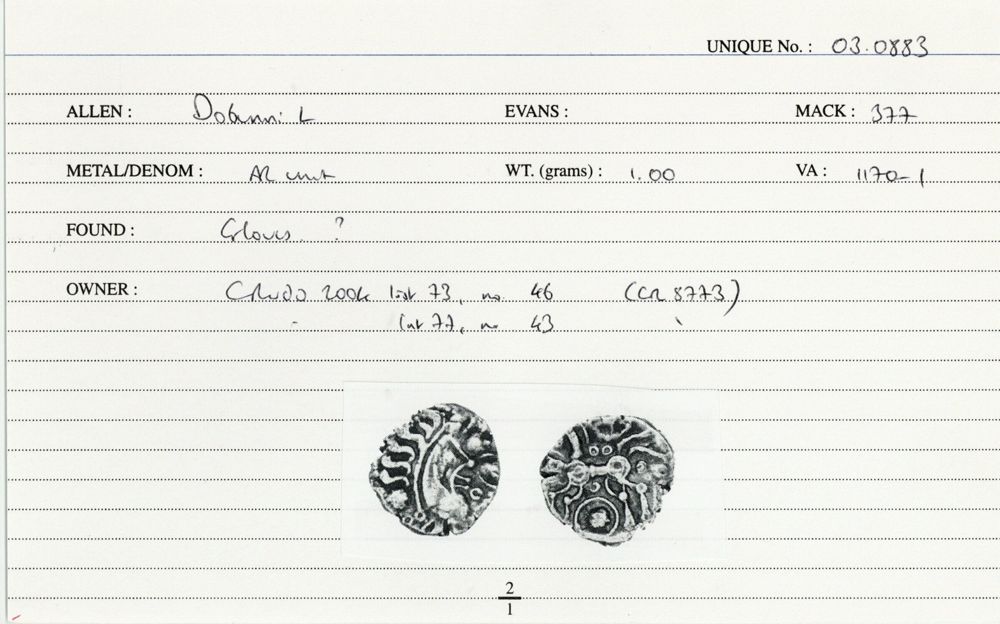 UNIQUE No. : 03.0883
ALLEN : Dobunni L EVANS : MACK : 377
METAL/DENOM : AR unit WT. (grams) : 1.00 VA : 1170-1
FOUND : Gloucs. ?
OWNER : list 73, no. 46 (CR 8773)
list 77, no 43
2
1